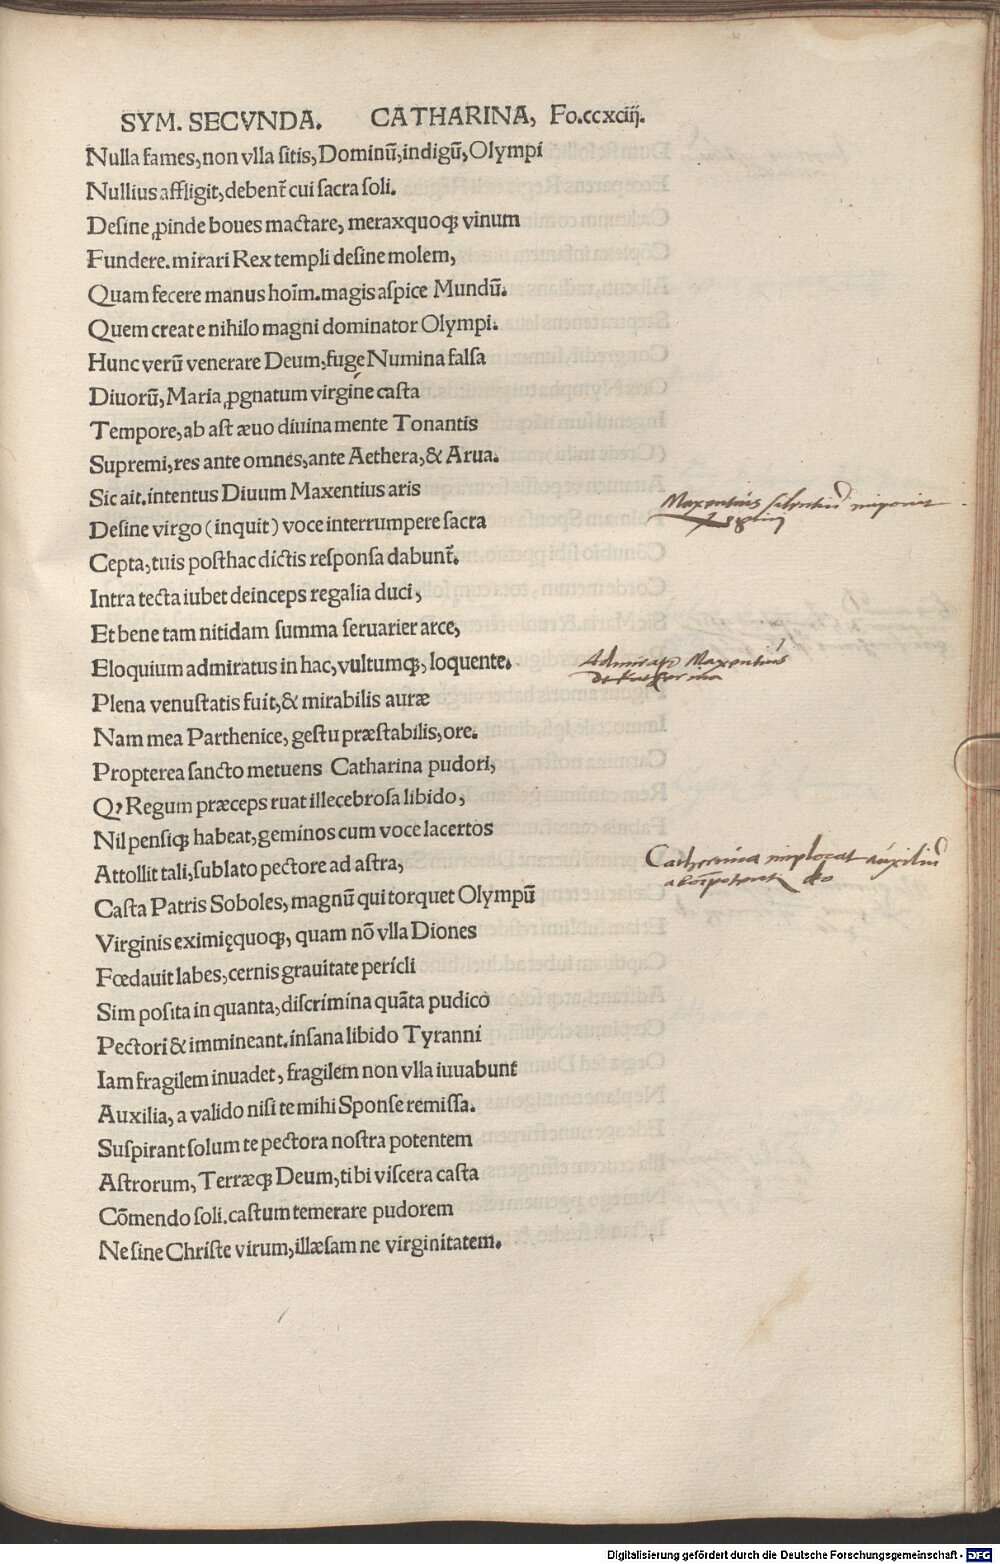 SYM. SECVNDA. CATHARINA, Fo.ccxciij.
Nulla fames, non vlla sitis, Dominũ, indigũ, Olympi
Nullius affligit, debent̃ cui sacra soli.
Desine ꝓinde boues mactare, meraxquoqꝫ vinum
Fundere. mirari Rex templi desine molem,
Quam fecere manus hoĩm. magis aspice Mundũ.
Quem creat e nihilo magni dominator Olympi.
Hunc verũ venerare Deum, fuge Numina falsa
Diuorũ, Maria ꝓgnatum virgine casta
Tempore, ab ast æuo diuina mente Tonantis
Supremi, res ante omnes, ante Aethera, & Arua.
Sic ait. intentus Diuum Maxentius aris
Desine virgo (inquit) voce interrumpere sacra
Cepta, tuis posthac dictis responsa dabunt̃.
Intra tecta iubet deinceps regalia duci,
Et bene tam nitidam summa seruarier arce,
Eloquium admiratus in hac, vultumqꝫ, loquente.
Plena venustatis fuit, & mirabilis auræ
Nam mea Parthenice, gestu præstabilis, ore.
Propterea sancto metuens Catharina pudori,
Qꝫ Regum præceps ruat illecebrosa libido,
Nil pensiqꝫ habeat, geminos cum voce lacertos
Attollit tali, sublato pectore ad astra,
Casta Patris Soboles, magnũ qui torquet Olympũ
Virginis eximięquoqꝫ, quam nõ vlla Diones
Fœdauit labes, cernis grauitate perícli
Sim posita in quanta, discrimina quãta pudico
Pectori & immineant. insana libido Tyranni
Iam fragilem inuadet, fragilem non vlla iuuabunt
Auxilia, a valido nisi te mihi Sponse remissa.
Suspirant solum te pectora nostra potentem
Astrorum, Terræqꝫ Deum, tibi viscera casta
Cõmendo soli. castum temerare pudorem
Ne sine Christe virum, illæsam ne virginitatem.
Maxentius silentiũ imponit
Admirat Maxentius
Catherina implorat auxiliũ
deo
Digitalisierung gefördert durch die Deutsche Forschungsgemeinschaft - DFG